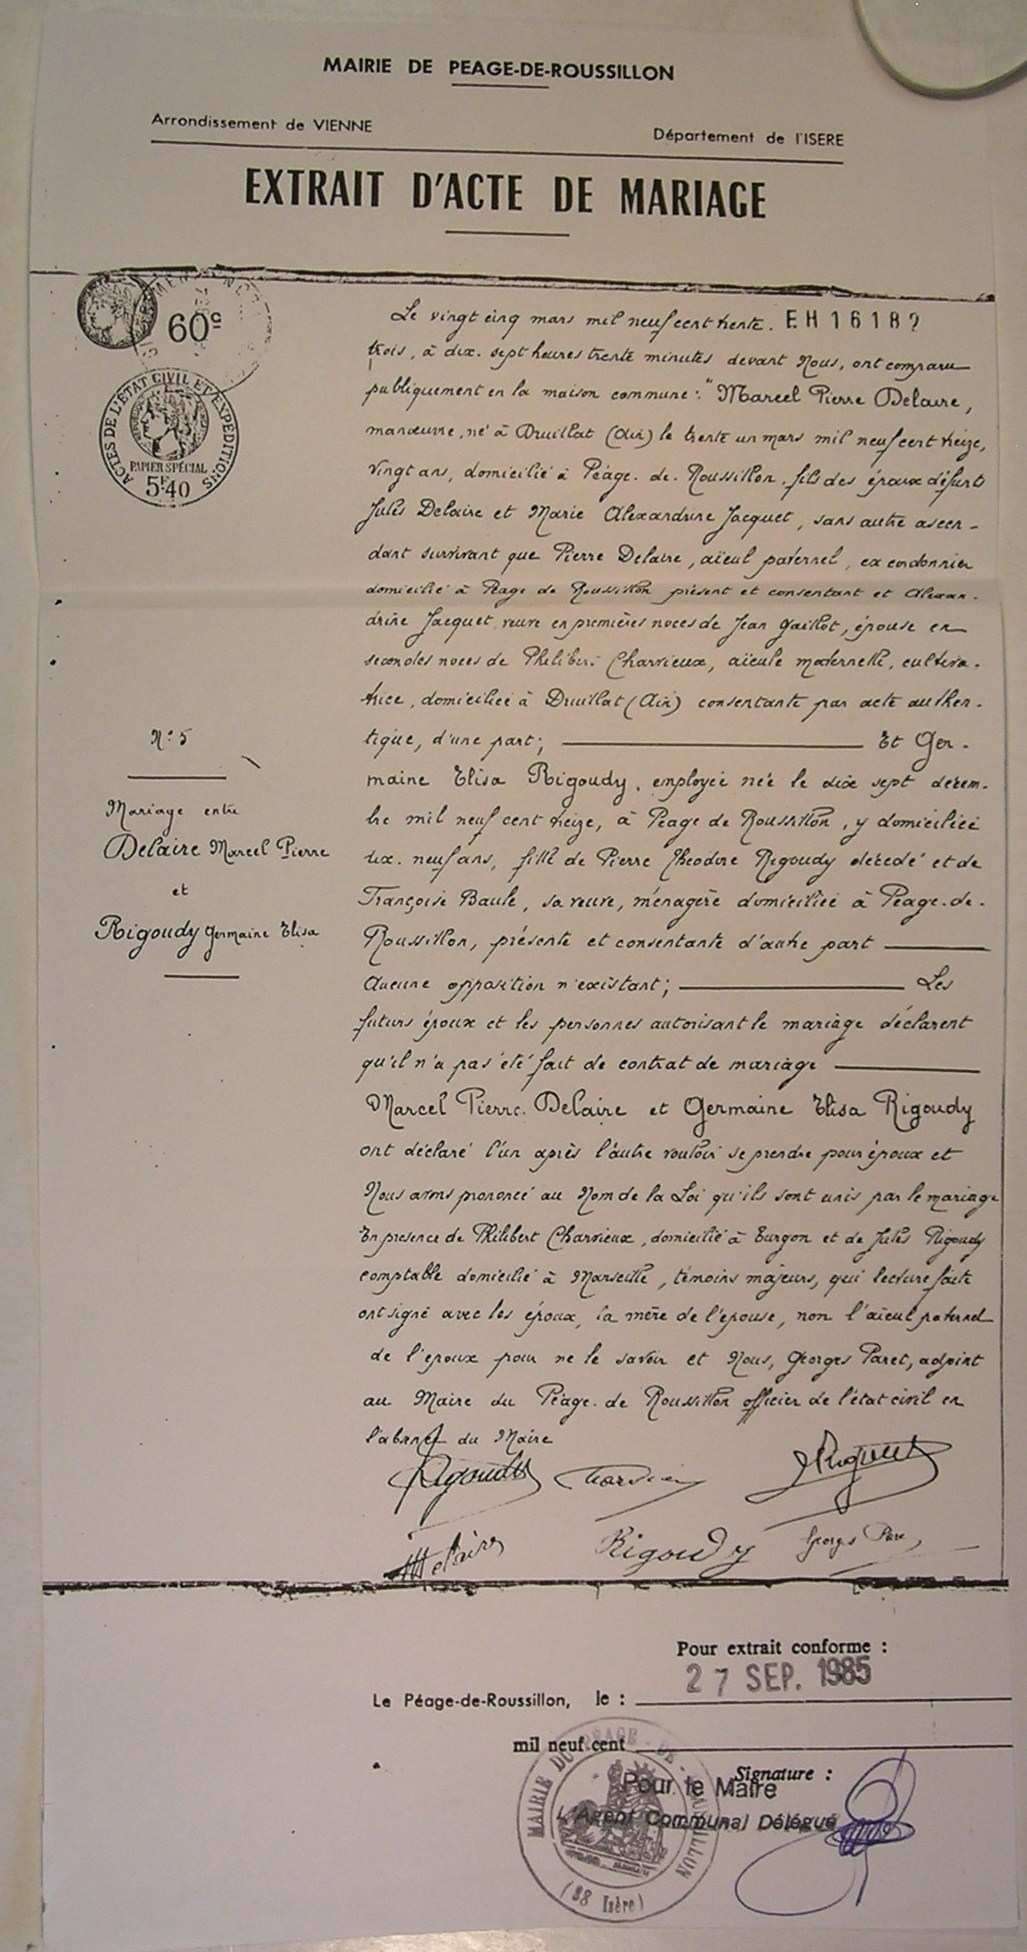 MAIRIE DE PEAGE-DE-ROUSSILLON
Arrondissement de VIENNE
Département de l'ISERE
EXTRAIT D'ACTE DE MARIAGE
60c
ACTES DE L'ETAT CIVIL ET EXPEDITIONS
PAPIER SPÉCIAL
5F40
Le vingt cinq mars mil neuf cent trente. EH 16182
trois, à dix. sept heures trente minutes devant Nous, ont comparu
publiquement en la maison commune: "Marcel Pierre Delaire,
manœuvre, né à Druillat (Ain) le trente un mars mil neuf cent treize,
vingt ans, domicilié à Péage. de. Roussillon, fils des époux défunts
Jules Delaire et Marie Alexandrine Jacquet, sans autre ascen-
dant survivant que Pierre Delaire, aïeul paternel, ex cordonnier
domicilié à Péage de Roussillon présent et consentant et Alexan-
drine Jacquet, veuve en premières noces de Jean Gaillot, épouse en
secondes noces de Philibert Charvieux, aïeule maternelle, cultiva-
trice, domiciliée à Druillat (Ain) consentante par acte authen-
tique, d'une part; Et Ger-
maine Elisa Rigoudy, employée née le dix sept décem-
bre mil neuf cent treize, à Péage de Roussillon, y domiciliée
dix. neuf ans, fille de Pierre Théodore Rigoudy décédé et de
Françoise Baule, sa veuve, ménagère domiciliée à Péage-de-
Roussillon, présente et consentante d'autre part
Aucune opposition n'existant; Les
futurs époux et les personnes autorisant le mariage déclarent
qu'il n'a pas été fait de contrat de mariage
Marcel Pierre Delaire et Germaine Elisa Rigoudy
ont déclaré l'un après l'autre vouloir se prendre pour époux et
Nous avons prononcé au Nom de la Loi qu'ils sont unis par le mariage
En présence de Philibert Charvieux, domicilié à Turgon et de Jules Rigoudy
comptable domicilié à Marseille, témoins majeurs, qui lecture faite
ont signé avec les époux, la mère de l'épouse, non l'aïeul paternel
de l'époux pour ne le savoir et Nous, Georges Paret, adjoint
au Maire du Péage. de Roussillon officier de l'état civil en
l'absence du Maire
N° 5
Mariage entre
Delaire Marcel Pierre
et
Rigoudy Germaine Elisa
Rigoudy
Delaire Rigoudy Georges
Pour extrait conforme :
27 SEP. 1985
Le Péage-de-Roussillon, le :
mil neuf cent
Signature :
Pour le Maire
L'Agent Communal Délégué
MAIRIE DU PÉAGE - DE - ROUSSILLON
(38 Isère)